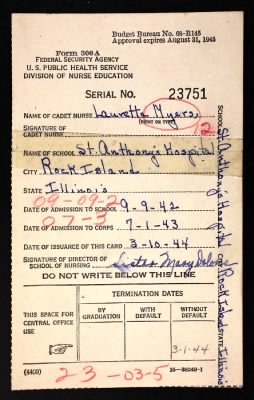 Budget Bureau No. 68-R145
Approval expires August 31, 1945
Form 300A
FEDERAL SECURITY AGENCY
U. S. PUBLIC HEALTH SERVICE
DIVISION OF NURSE EDUCATION
SERIAL NO. 23751
NAME OF CADET NURSE Laurette Myers
(PRINT OR TYPE)
SIGNATURE OF
CADET NURSE
12
NAME OF SCHOOL St. Anthony's Hospital
CITY Rock Island
STATE Illinois
09-09-2
DATE OF ADMISSION TO SCHOOL 9-9-42
07-3
DATE OF ADMISSION TO CORPS 7-1-43
DATE OF ISSUANCE OF THIS CARD 3-10-44
SIGNATURE OF DIRECTOR
OF SCHOOL OF NURSING Sister Mary
DO NOT WRITE BELOW THIS LINE
THIS SPACE FOR
CENTRAL OFFICE
USE
TERMINATION DATES
BY
GRADUATION
WITH
DEFAULT
WITHOUT
DEFAULT
3-1-44
(4400)
16-38249-1
23-03-5
SCHOOL St. Anthony's Hospital CITY Rock Island STATE Illinois